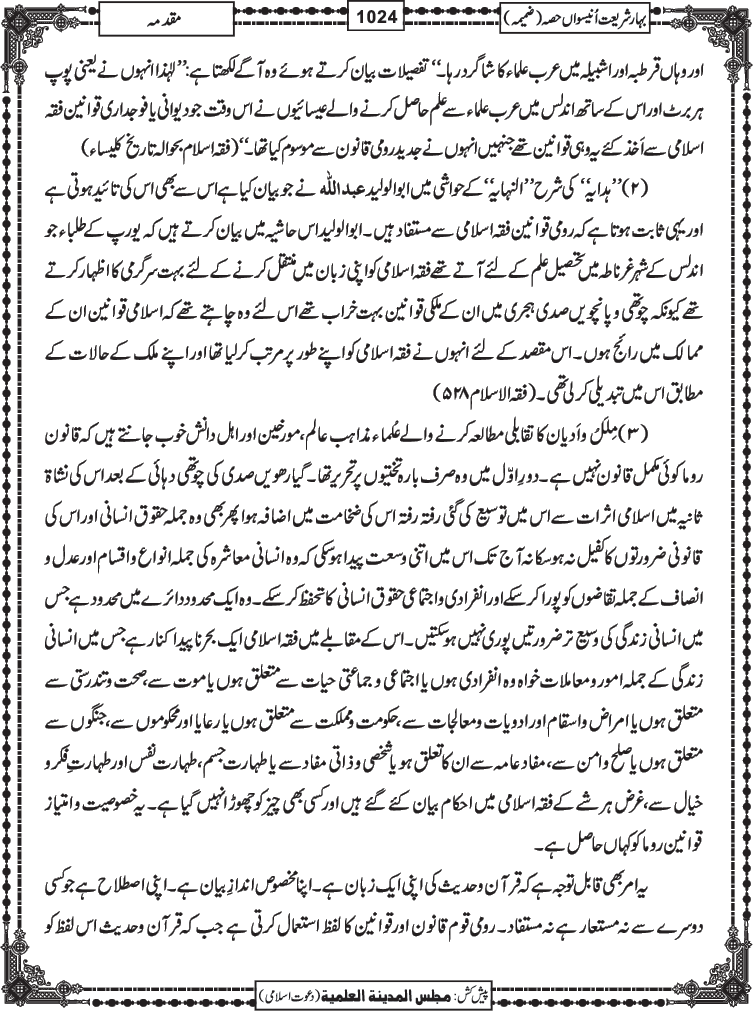 بہارِشریعت اُنیسواں حصہ (ضمیمہ)
1024
مقدمہ
اور وہاں قرطبہ اور اشبیلہ میں عرب علماء کا شاگرد رہا۔‘‘ تفصیلات بیان کرتے ہوئے وہ آگے لکھتا ہے: ’’لہٰذا انہوں نے یعنی پوپ
ہربرٹ اور اس کے ساتھ اندلس میں عرب علماء سے علم حاصل کرنے والے عیسائیوں نے اس وقت جو دیوانی یا فوجداری قوانین فقہ
اسلامی سے اَخذ کئے یہ وہی قوانین تھے جنہیں انہوں نے جدید رومی قانون سے موسوم کیا تھا۔‘‘ (فقہ اسلام بحوالہ تاریخ کلیساء)
(۲) ’’ہدایہ‘‘ کی شرح ’’النہایہ‘‘ کے حواشی میں ابوالولید عبداللہ نے جو بیان کیا ہے اس سے بھی اس کی تائید ہوتی ہے
اور یہی ثابت ہوتا ہے کہ رومی قوانین فقہ اسلامی سے مستفاد ہیں۔ ابوالولید اس حاشیہ میں بیان کرتے ہیں کہ یورپ کے طلباء جو
اندلس کے شہر غرناطہ میں تحصیل علم کے لئے آتے تھے فقہ اسلامی کو اپنی زبان میں منتقل کرنے کے لئے بہت سرگرمی کا اظہار کرتے
تھے کیونکہ چوتھی و پانچویں صدی ہجری میں ان کے ملکی قوانین بہت خراب تھے اس لئے وہ چاہتے تھے کہ اسلامی قوانین ان کے
ممالک میں رائج ہوں۔ اس مقصد کے لئے انہوں نے فقہ اسلامی کو اپنے طور پر مرتب کر لیا تھا اور اپنے ملک کے حالات کے
مطابق اس میں تبدیلی کر لی تھی۔ (فقہ الاسلام ۵۲۸)
(۳) مِلَلْ و اَدیان کا تقابلی مطالعہ کرنے والے عُلماء مذاہب عالم، مورخین اور اہل دانش خوب جانتے ہیں کہ قانون
روما کوئی مکمل قانون نہیں ہے۔ دورِ اوّل میں وہ صرف بارہ تختیوں پر تحریر تھا۔ گیارھویں صدی کی چوتھی دہائی کے بعد اس کی نشاۃ
ثانیہ میں اسلامی اثرات سے اس میں توسیع کی گئی رفتہ رفتہ اس کی ضخامت میں اضافہ ہوا پھر بھی وہ جملہ حقوق انسانی اور اس کی
قانونی ضرورتوں کا کفیل نہ ہو سکا نہ آج تک اس میں اتنی وسعت پیدا ہو سکی کہ وہ انسانی معاشرہ کی جملہ انواع و اقسام اور عدل و
انصاف کے جملہ تقاضوں کو پورا کر سکے اور انفرادی و اجتماعی حقوق انسانی کا تحفظ کر سکے۔ وہ ایک محدود دائرے میں محدود ہے جس
میں انسانی زندگی کی وسیع تر ضرورتیں پوری نہیں ہو سکتیں۔ اس کے مقابلے میں فقہ اسلامی ایک بحر ناپیدا کنار ہے جس میں انسانی
زندگی کے جملہ امور و معاملات خواہ وہ انفرادی ہوں یا اجتماعی و جماعتی حیات سے متعلق ہوں یا موت سے، صحت و تندرستی سے
متعلق ہوں یا امراض و اسقام اور ادویات و معالجات سے، حکومت و مملکت سے متعلق ہوں یا رعایا اور محکوموں سے، جنگوں سے
متعلق ہوں یا صلح و امن سے، مفاد عامہ سے ان کا تعلق ہو یا شخصی و ذاتی مفاد سے یا طہارت جسم، طہارت نفس اور طہارتِ فکر و
خیال سے، غرض ہر شے کے فقہ اسلامی میں احکام بیان کئے گئے ہیں اور کسی بھی چیز کو چھوڑا نہیں گیا ہے۔ یہ خصوصیت و امتیاز
قوانین روما کو کہاں حاصل ہے۔
یہ امر بھی قابل توجہ ہے کہ قرآن و حدیث کی اپنی ایک زبان ہے۔ اپنا مخصوص اندازِ بیان ہے۔ اپنی اصطلاح ہے جو کسی
دوسرے سے نہ مستعار ہے نہ مستفاد۔ رومی قوم قانون اور قوانین کا لفظ استعمال کرتی ہے جب کہ قرآن و حدیث اس لفظ کو
پیش کش: مجلس المدینة العلمیة (دعوت اسلامی)